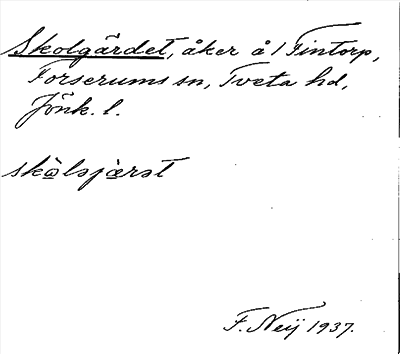 Skolgärdet, åker å 1 Tintorp,
Forserums sn, Tveta hd,
Jönk. l.
F. Neij 1937.